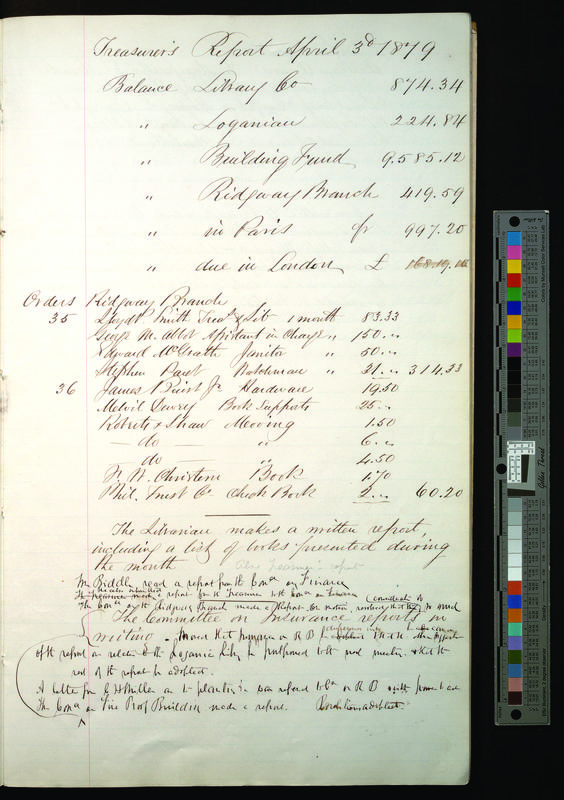 Treasurer's Report April 3d 1879
Balance Library Co 874.34
" Loganian 224.84
" Building Fund 9.585.12
" Ridgway Branch 419.59
" in Paris fr 997.20
" due in London £ 168.19.
Orders Ridgway Branch
35 Lloyd P. Smith Treas & Lib 1 month 83.33
George M. Abbot Assistant in Charge " 150."
Edward McGrath Janitor " 50."
Stephen Watchman " 31." 314.33
36 James Jr Hardware 19.50
Melvil Dewey Book Supports 25."
Roberts & Shaw Moving 1.50
— do — " 6."
— do — " 4.50
Christern Book 1.70
Phil. Trust Co Check Book 2." 60.20
The Librarian makes a written report,
including a list of books presented during
the month Also Treasurer's report
Mr Biddle read a report from the Comee on Finance
The Treasurer made a report to the Comee on Finance
The Comee on the Ridgway Branch made a Report
The Committee on Insurance reports in
writing.
of the report in relation to the Loganian Liby be postponed to the next meeting & that the
rest of the report be adopted.
A letter from was referred to Com on R B with power to act
The Comee on Fire Proof Building made a report. Resolutions adopted.